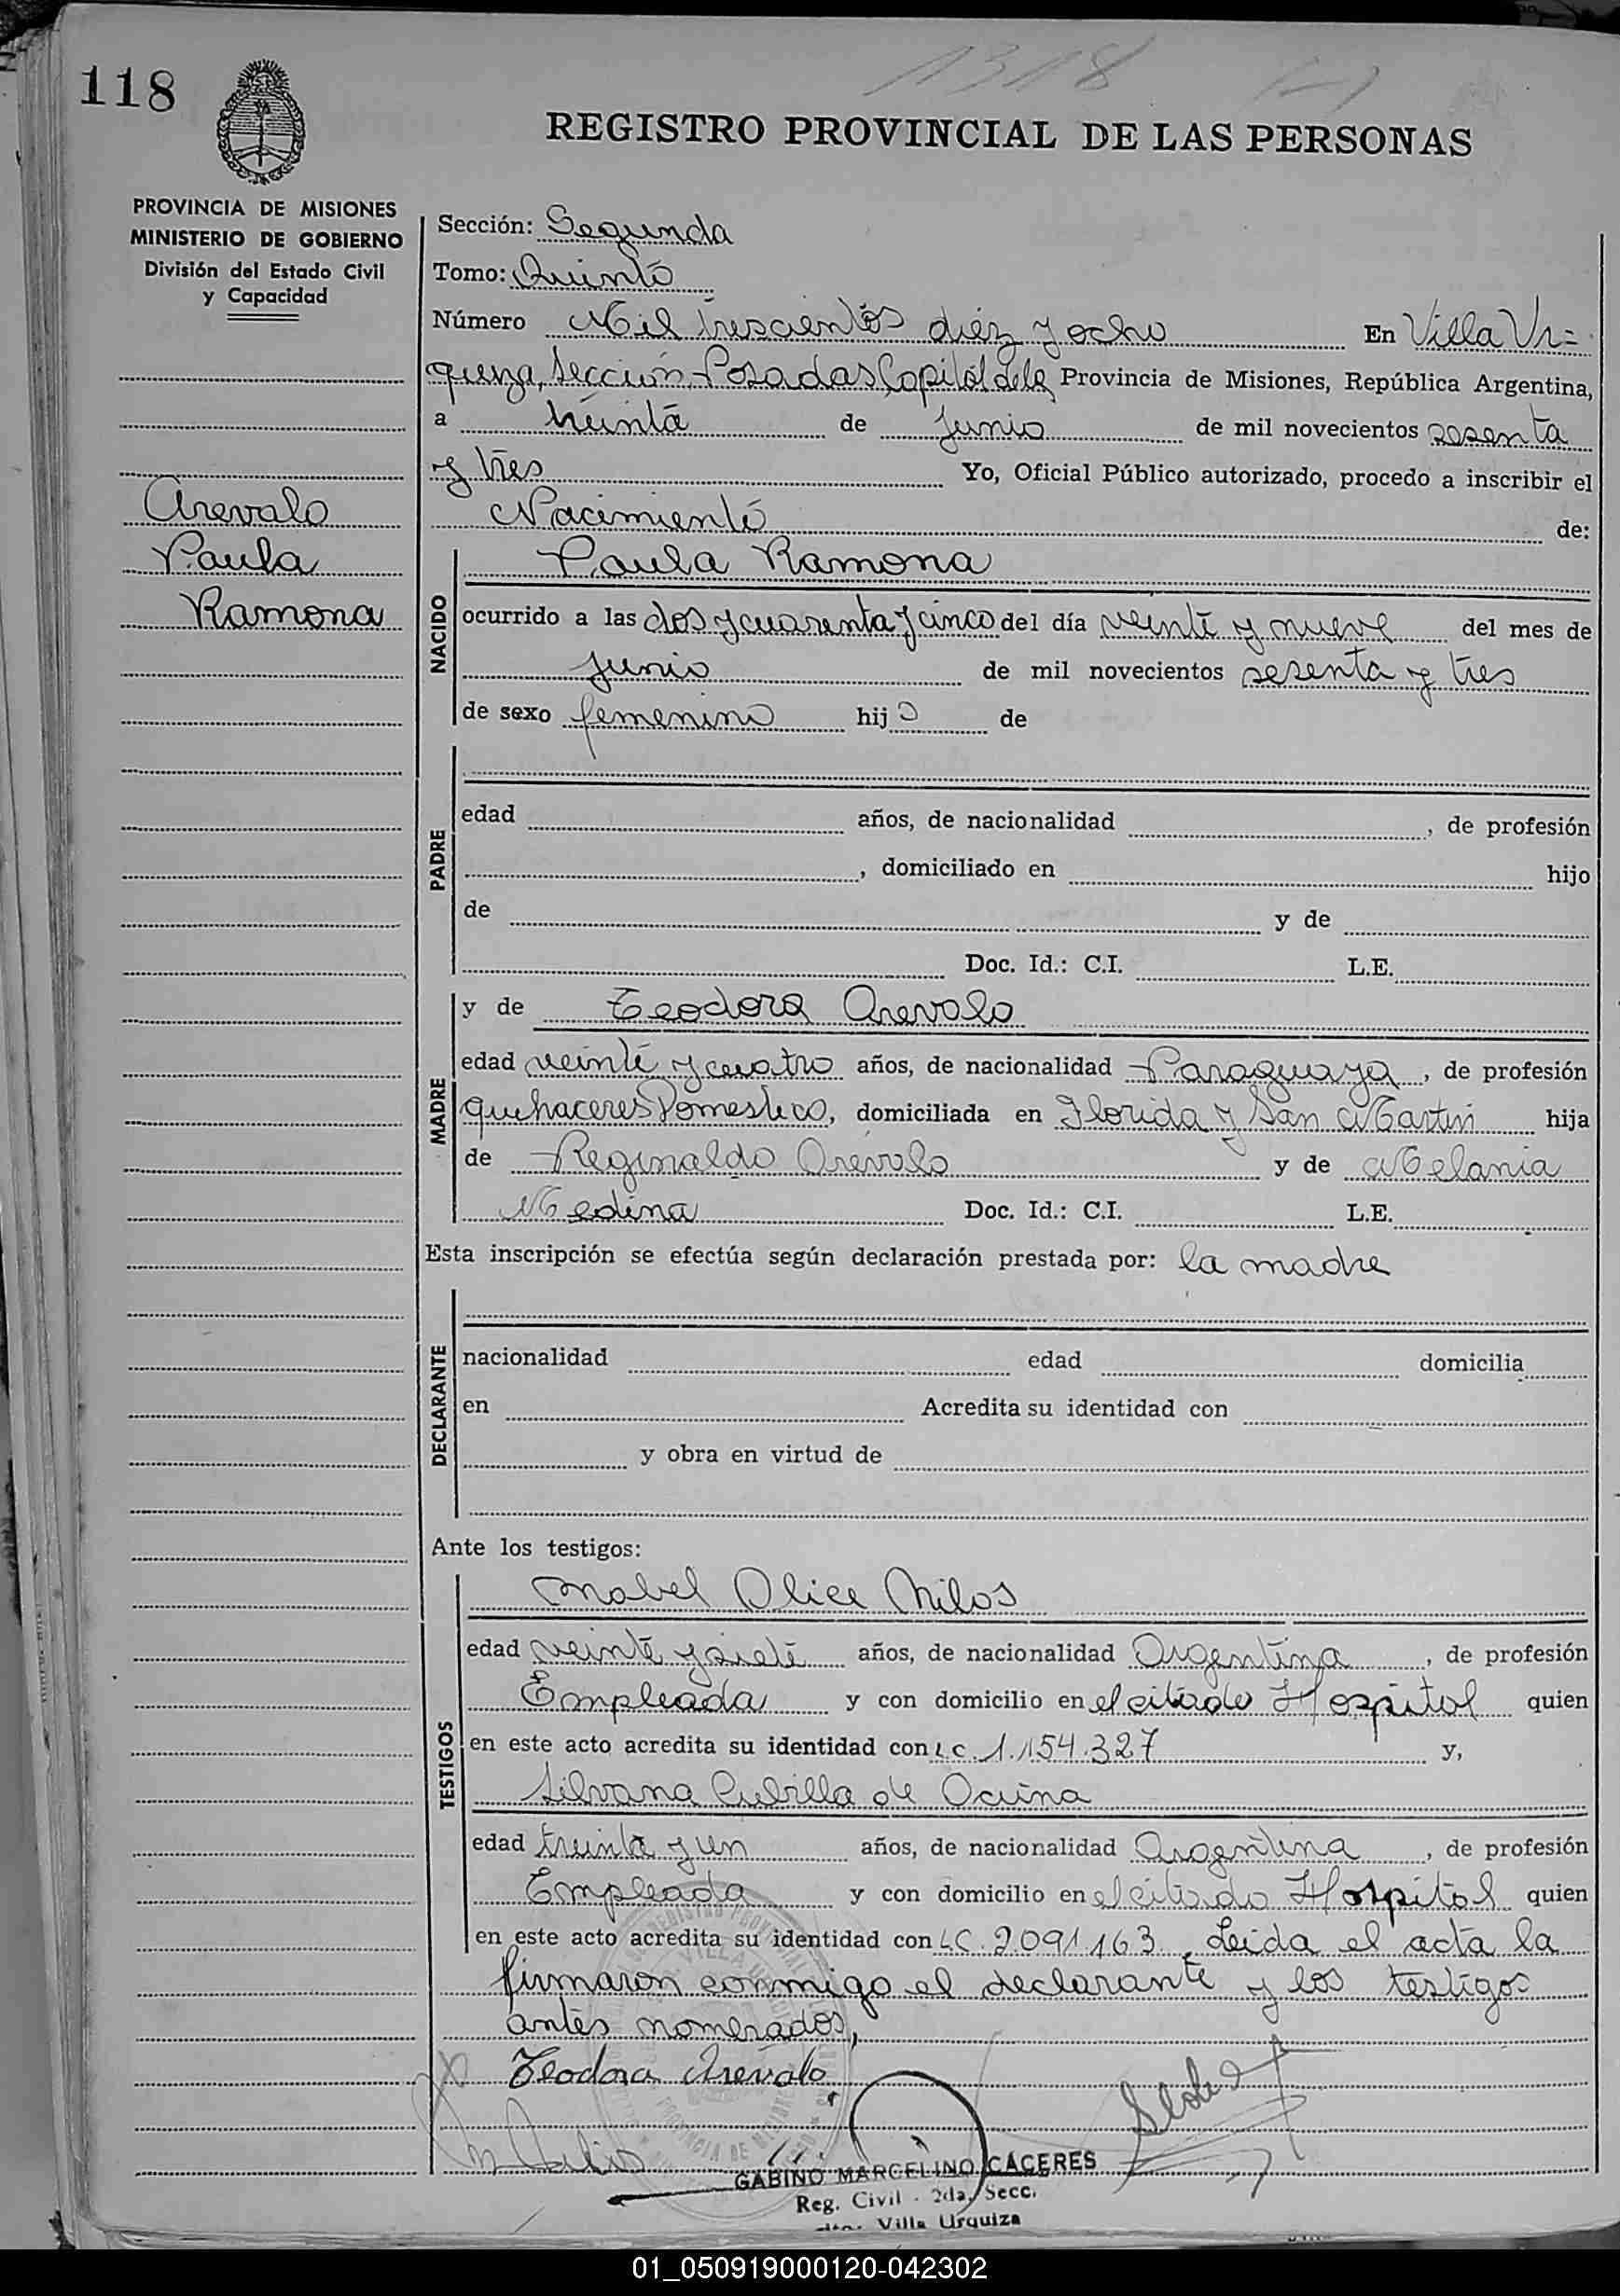 1318
118
REGISTRO PROVINCIAL DE LAS PERSONAS
PROVINCIA DE MISIONES
MINISTERIO DE GOBIERNO
División del Estado Civil
y Capacidad
Arevalo
Paula
Ramona
Sección: Segunda
Tomo: Quinto
Número Mil trescientos diez y ocho En Villa Ur=
quiza, Sección Posadas, Capital de la Provincia de Misiones, República Argentina,
a treinta de Junio de mil novecientos sesenta
y tres Yo, Oficial Público autorizado, procedo a inscribir el
Nacimiento de:
NACIDO
Paula Ramona
ocurrido a las dos y cuarenta y cinco del día veinte y nueve del mes de
Junio de mil novecientos sesenta y tres
de sexo femenino hijo de
PADRE
edad años, de nacionalidad , de profesión
, domiciliado en hijo
de y de
Doc. Id.: C.I. L.E.
MADRE
y de Teodora Arevalo
edad veinte y cuatro años, de nacionalidad Paraguaya, de profesión
quehaceres Domestico, domiciliada en Florida y San Martin hija
de Reginaldo Arevalo y de Melania
Medina Doc. Id.: C.I. L.E.
Esta inscripción se efectúa según declaración prestada por: la madre
DECLARANTE
nacionalidad edad domicilia
en Acredita su identidad con
y obra en virtud de
Ante los testigos:
TESTIGOS
Mabel Alice
edad veinte y siete años, de nacionalidad Argentina, de profesión
Empleada y con domicilio en el citado Hospital quien
en este acto acredita su identidad con L.C. 1.154.327 y,
Silvana Cubilla de
edad treinta y un años, de nacionalidad Argentina, de profesión
Empleada y con domicilio en el citado Hospital quien
en este acto acredita su identidad con L.C. 2.091.163, Leida el acta la
firmaron conmigo el declarante y los testigos
antes nomerados,
Teodora Arevalo
GABINO MARCELINO CACERES
Reg. Civil - 2da, Secc.
Villa Urquiza
01_050919000120-042302